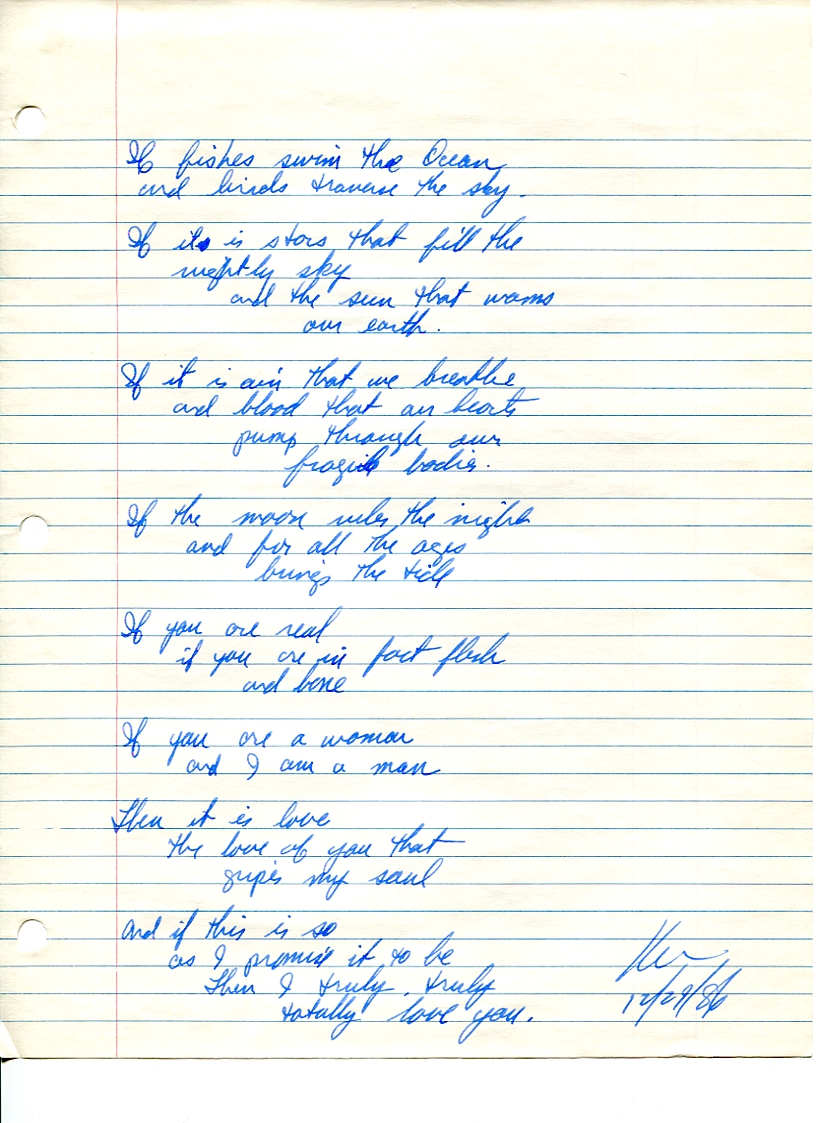 If fishes swim the Ocean
and birds traverse the sky.
If it is stars that fill the
nightly sky
and the sun that warms
our earth.
If it is air that we breathe
and blood that our hearts
pump through our
fragile bodies.
If the moon rules the night
and for all the ages
brings the tide
If you are real
if you are in fact flesh
and bone
If you are a woman
and I am a man
Then it is love
the love of you that
gripes my soul
And if this is so
as I promise it to be
Then I truly, truly
totally love you.
12/29/86